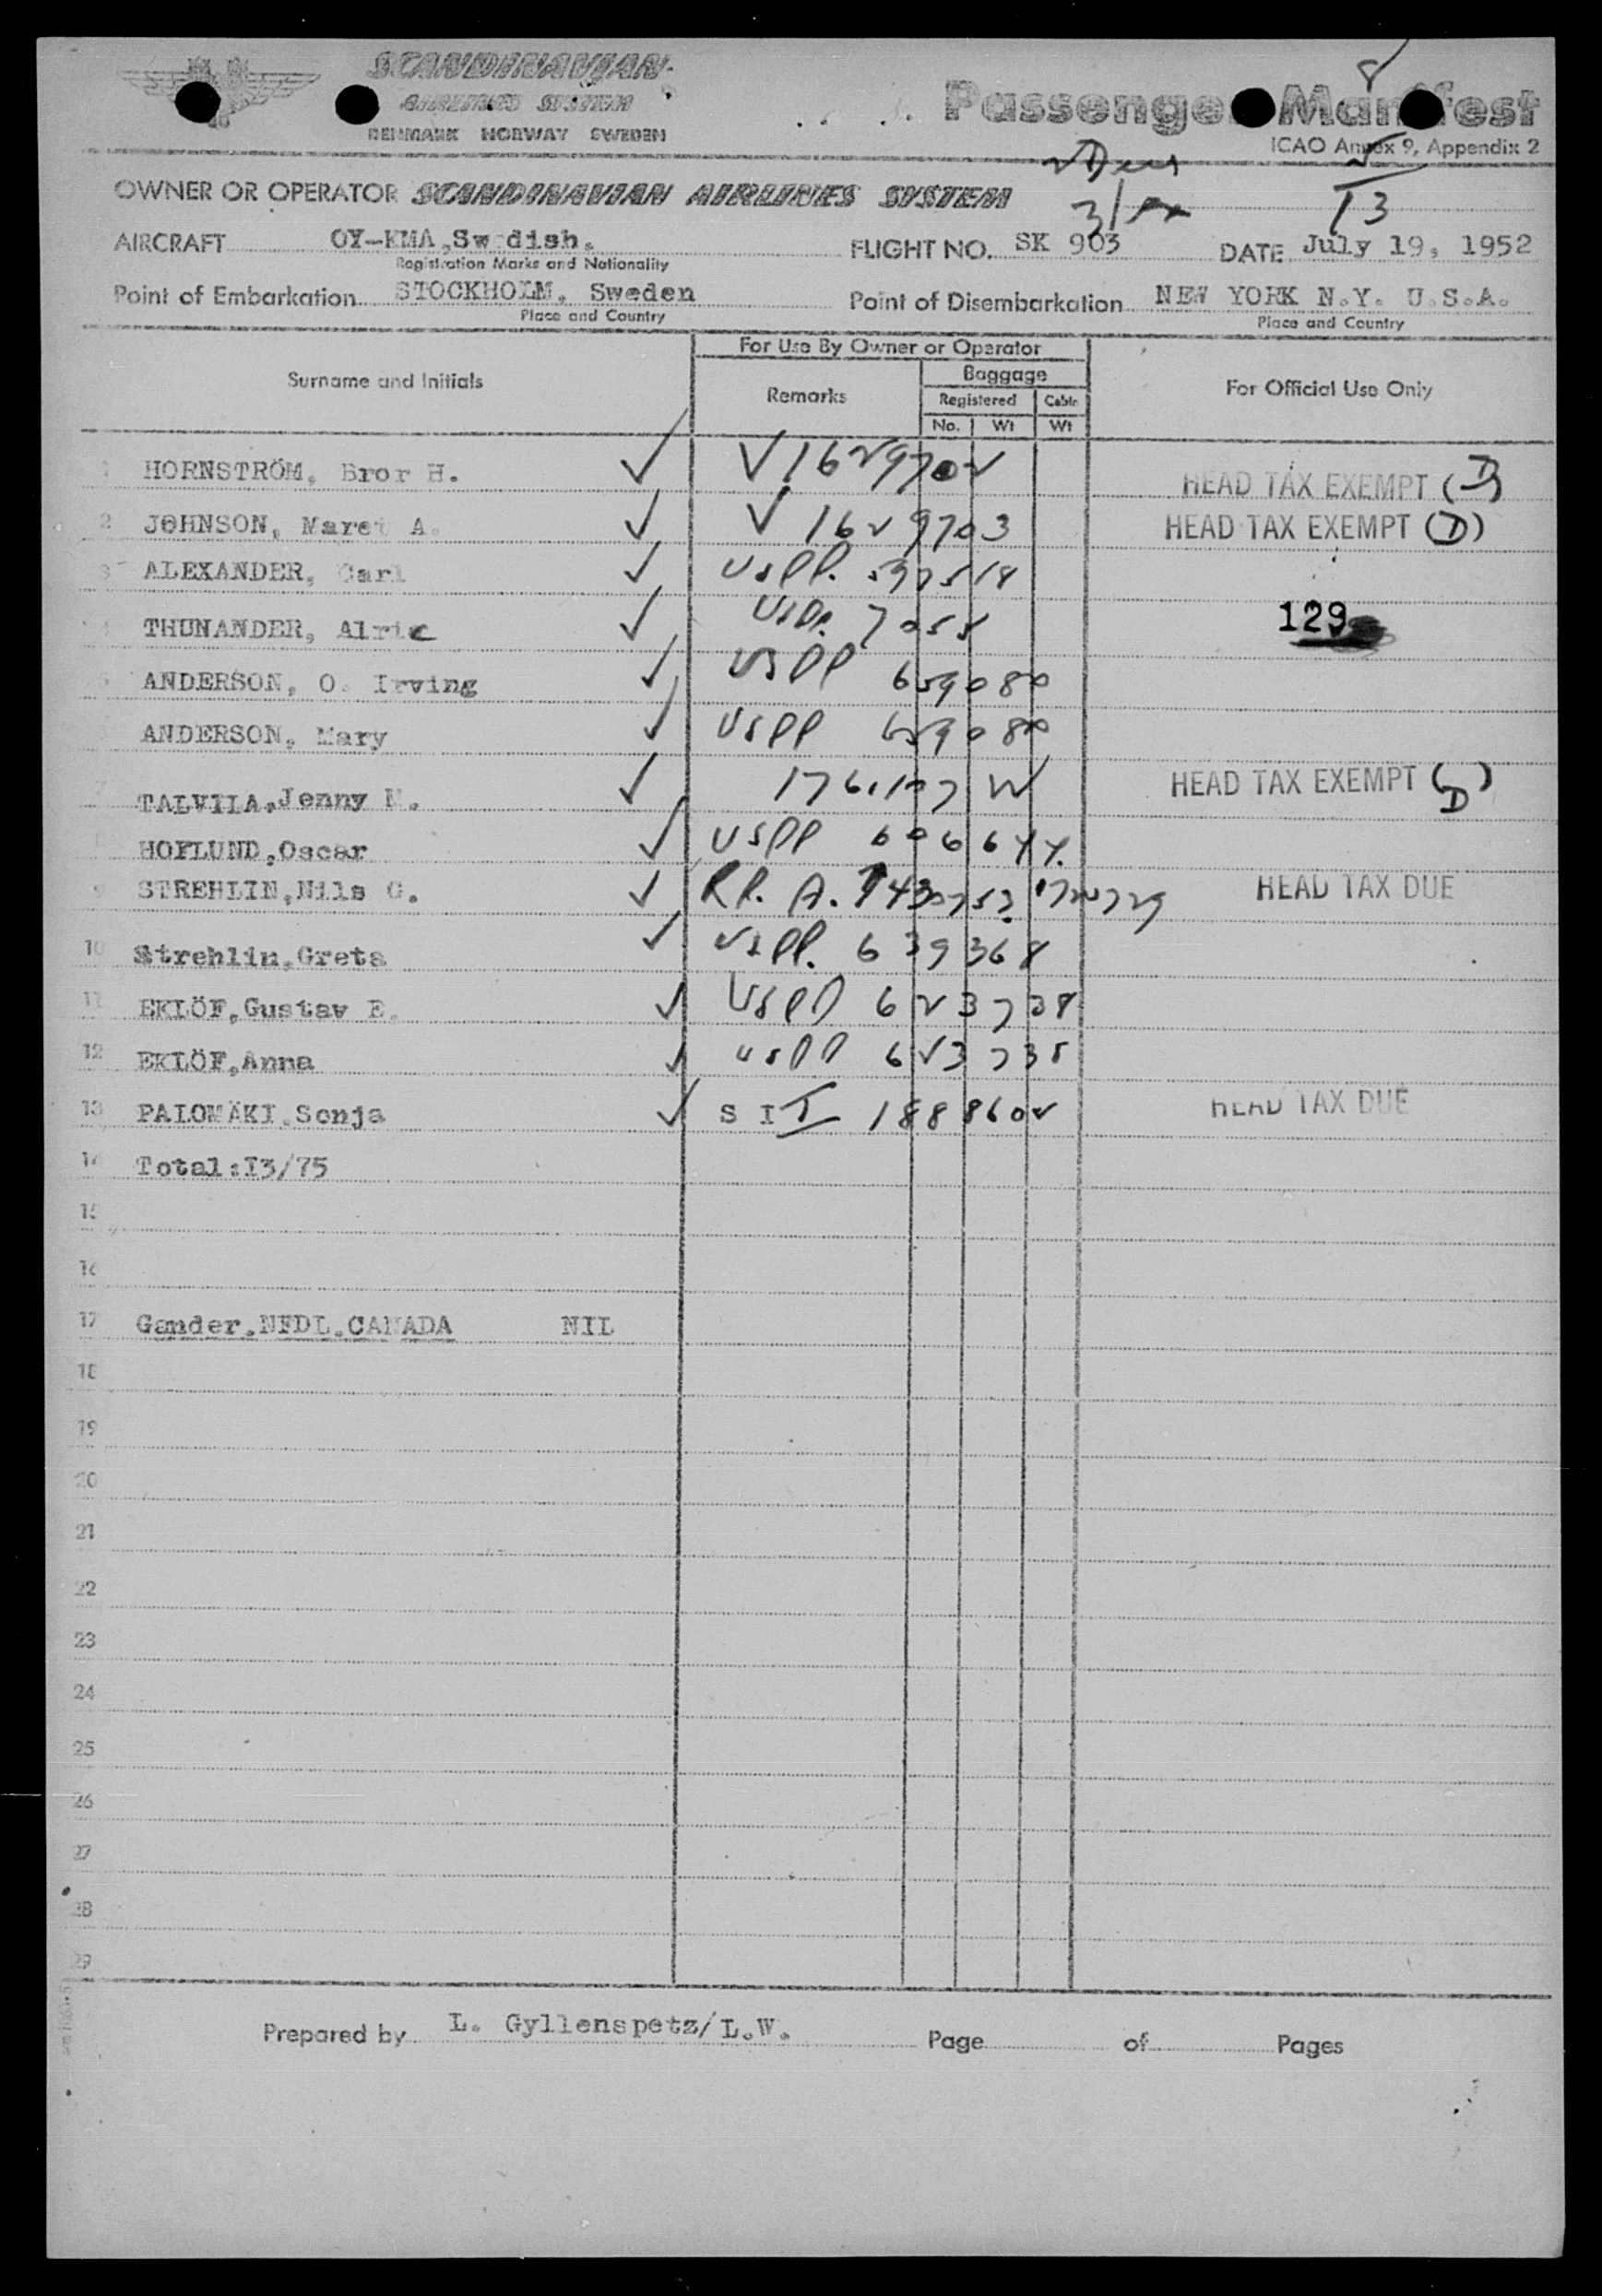 SCANDINAVIAN
AIRLINES SYSTEM
DENMARK NORWAY SWEDEN
Passenger Manifest
8
ICAO Annex 9, Appendix 2
OWNER OR OPERATOR SCANDINAVIAN AIRLINES SYSTEM
13
AIRCRAFT OY-KMA,Sw dish.
Registration Marks and Nationality
FLIGHT NO. SK 903 DATE July 19, 1952
Point of Embarkation STOCKHOLM, Sweden
Place and Country
Point of Disembarkation NEW YORK N.Y. U.S.A.
Place and Country
For Use By Owner or Operator
Surname and Initials
Remarks
Baggage
For Official Use Only
Registered Cabin
No. Wt Wt
1 HORNSTRÖM, Bror H. ✓ V 1629702 HEAD TAX EXEMPT (D)
2 JOHNSON, Maret A. ✓ V 1629703 HEAD TAX EXEMPT (D)
3 ALEXANDER, Carl ✓ USPP. 597518
4 THUNANDER, Alric ✓ 129
5 ANDERSON, O. Irving ✓ USPP 659080
6 ANDERSON, Mary ✓ USPP 659080
7 TALVIIA,Jenny M. ✓ HEAD TAX EXEMPT (D)
HOFLUND,Oscar ✓ USPP 606644.
9 STREHLIN,Nils G. ✓ R.P. A. HEAD TAX DUE
10 Strehlin,Greta ✓ USPP. 639368
11 EKLÖF,Gustav E. ✓ USPP 623738
12 EKLÖF,Anna ✓ USPP 623735
13 PALOMÄKI,Sonja ✓ S I I 1888602 HEAD TAX DUE
14 Total:I3/75
15
16
17 Gander.NFDL.CANADA NIL
18
19
20
21
22
23
24
25
26
27
28
29
Prepared by L. Gyllenspetz/L.W. Page of Pages